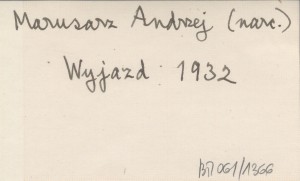 Marusarz Andrzej (narc.)
Wyjazd : 1932
BП 061/1366